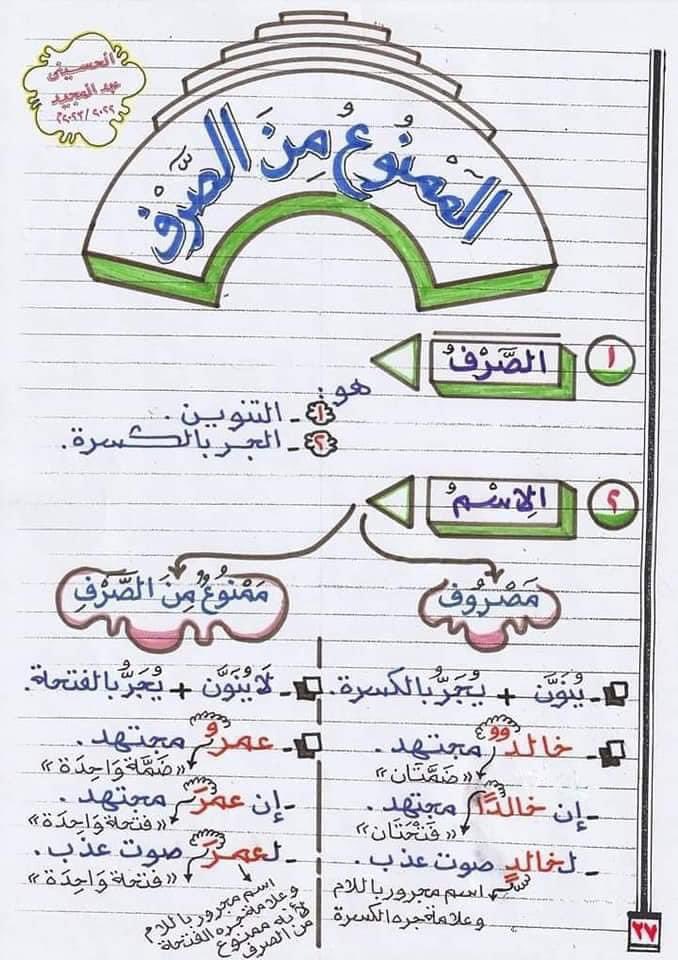 الحسيني
عبد المجيد
٢٠٢٢/٢٠٢٣م
المَمْنُوعُ مِنَ الصَّرْفِ
١ الصَّرْفُ
هو:
١- التنوين.
٢- الجر بالكسرة.
٢ الِاسْمُ
مَصْرُوف
مَمْنُوعٌ مِنَ الصَّرْفِ
- يُنَوَّن + يُجَرُّ بالكسرة.
- خالدٌ مجتهد.
«ضَمَّتَان»
- إن خالدًا مجتهد.
«فَتْحَتَان»
- لخالدٍ صوت عذب.
اسم مجرور باللام
وعلامة جره الكسرة
- لَا يُنَوَّن + يُجَرُّ بالفتحة.
- عمرُ مجتهد.
«ضَمَّة وَاحِدَة»
- إن عمرَ مجتهد.
«فتحة وَاحِدَة»
- لعمرَ صوت عذب.
«فتحة وَاحِدَة»
اسم مجرور باللام
وعلامة جره الفتحة
لأنه ممنوع
من الصرف
٢٧